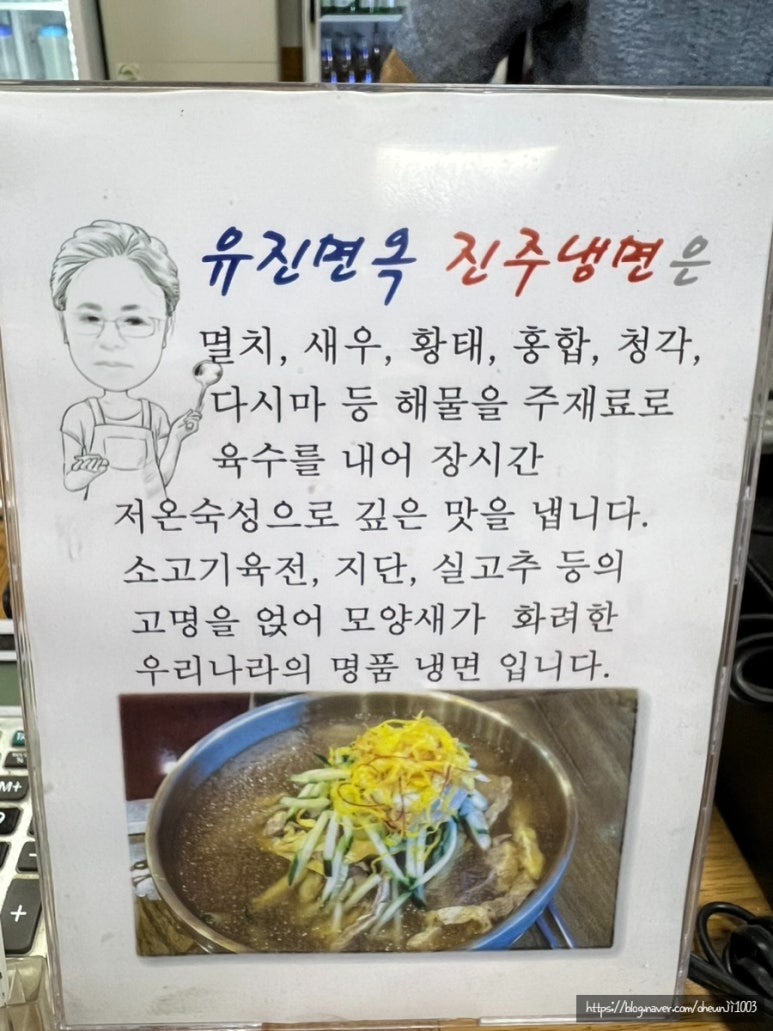 유진면옥 진주냉면은
멸치, 새우, 황태, 홍합, 청각,
다시마 등 해물을 주재료로
육수를 내어 장시간
저온숙성으로 깊은 맛을 냅니다.
소고기육전, 지단, 실고추 등의
고명을 얹어 모양새가 화려한
우리나라의 명품 냉면 입니다.
M+
+
https://blog.naver.com/cheunji1003